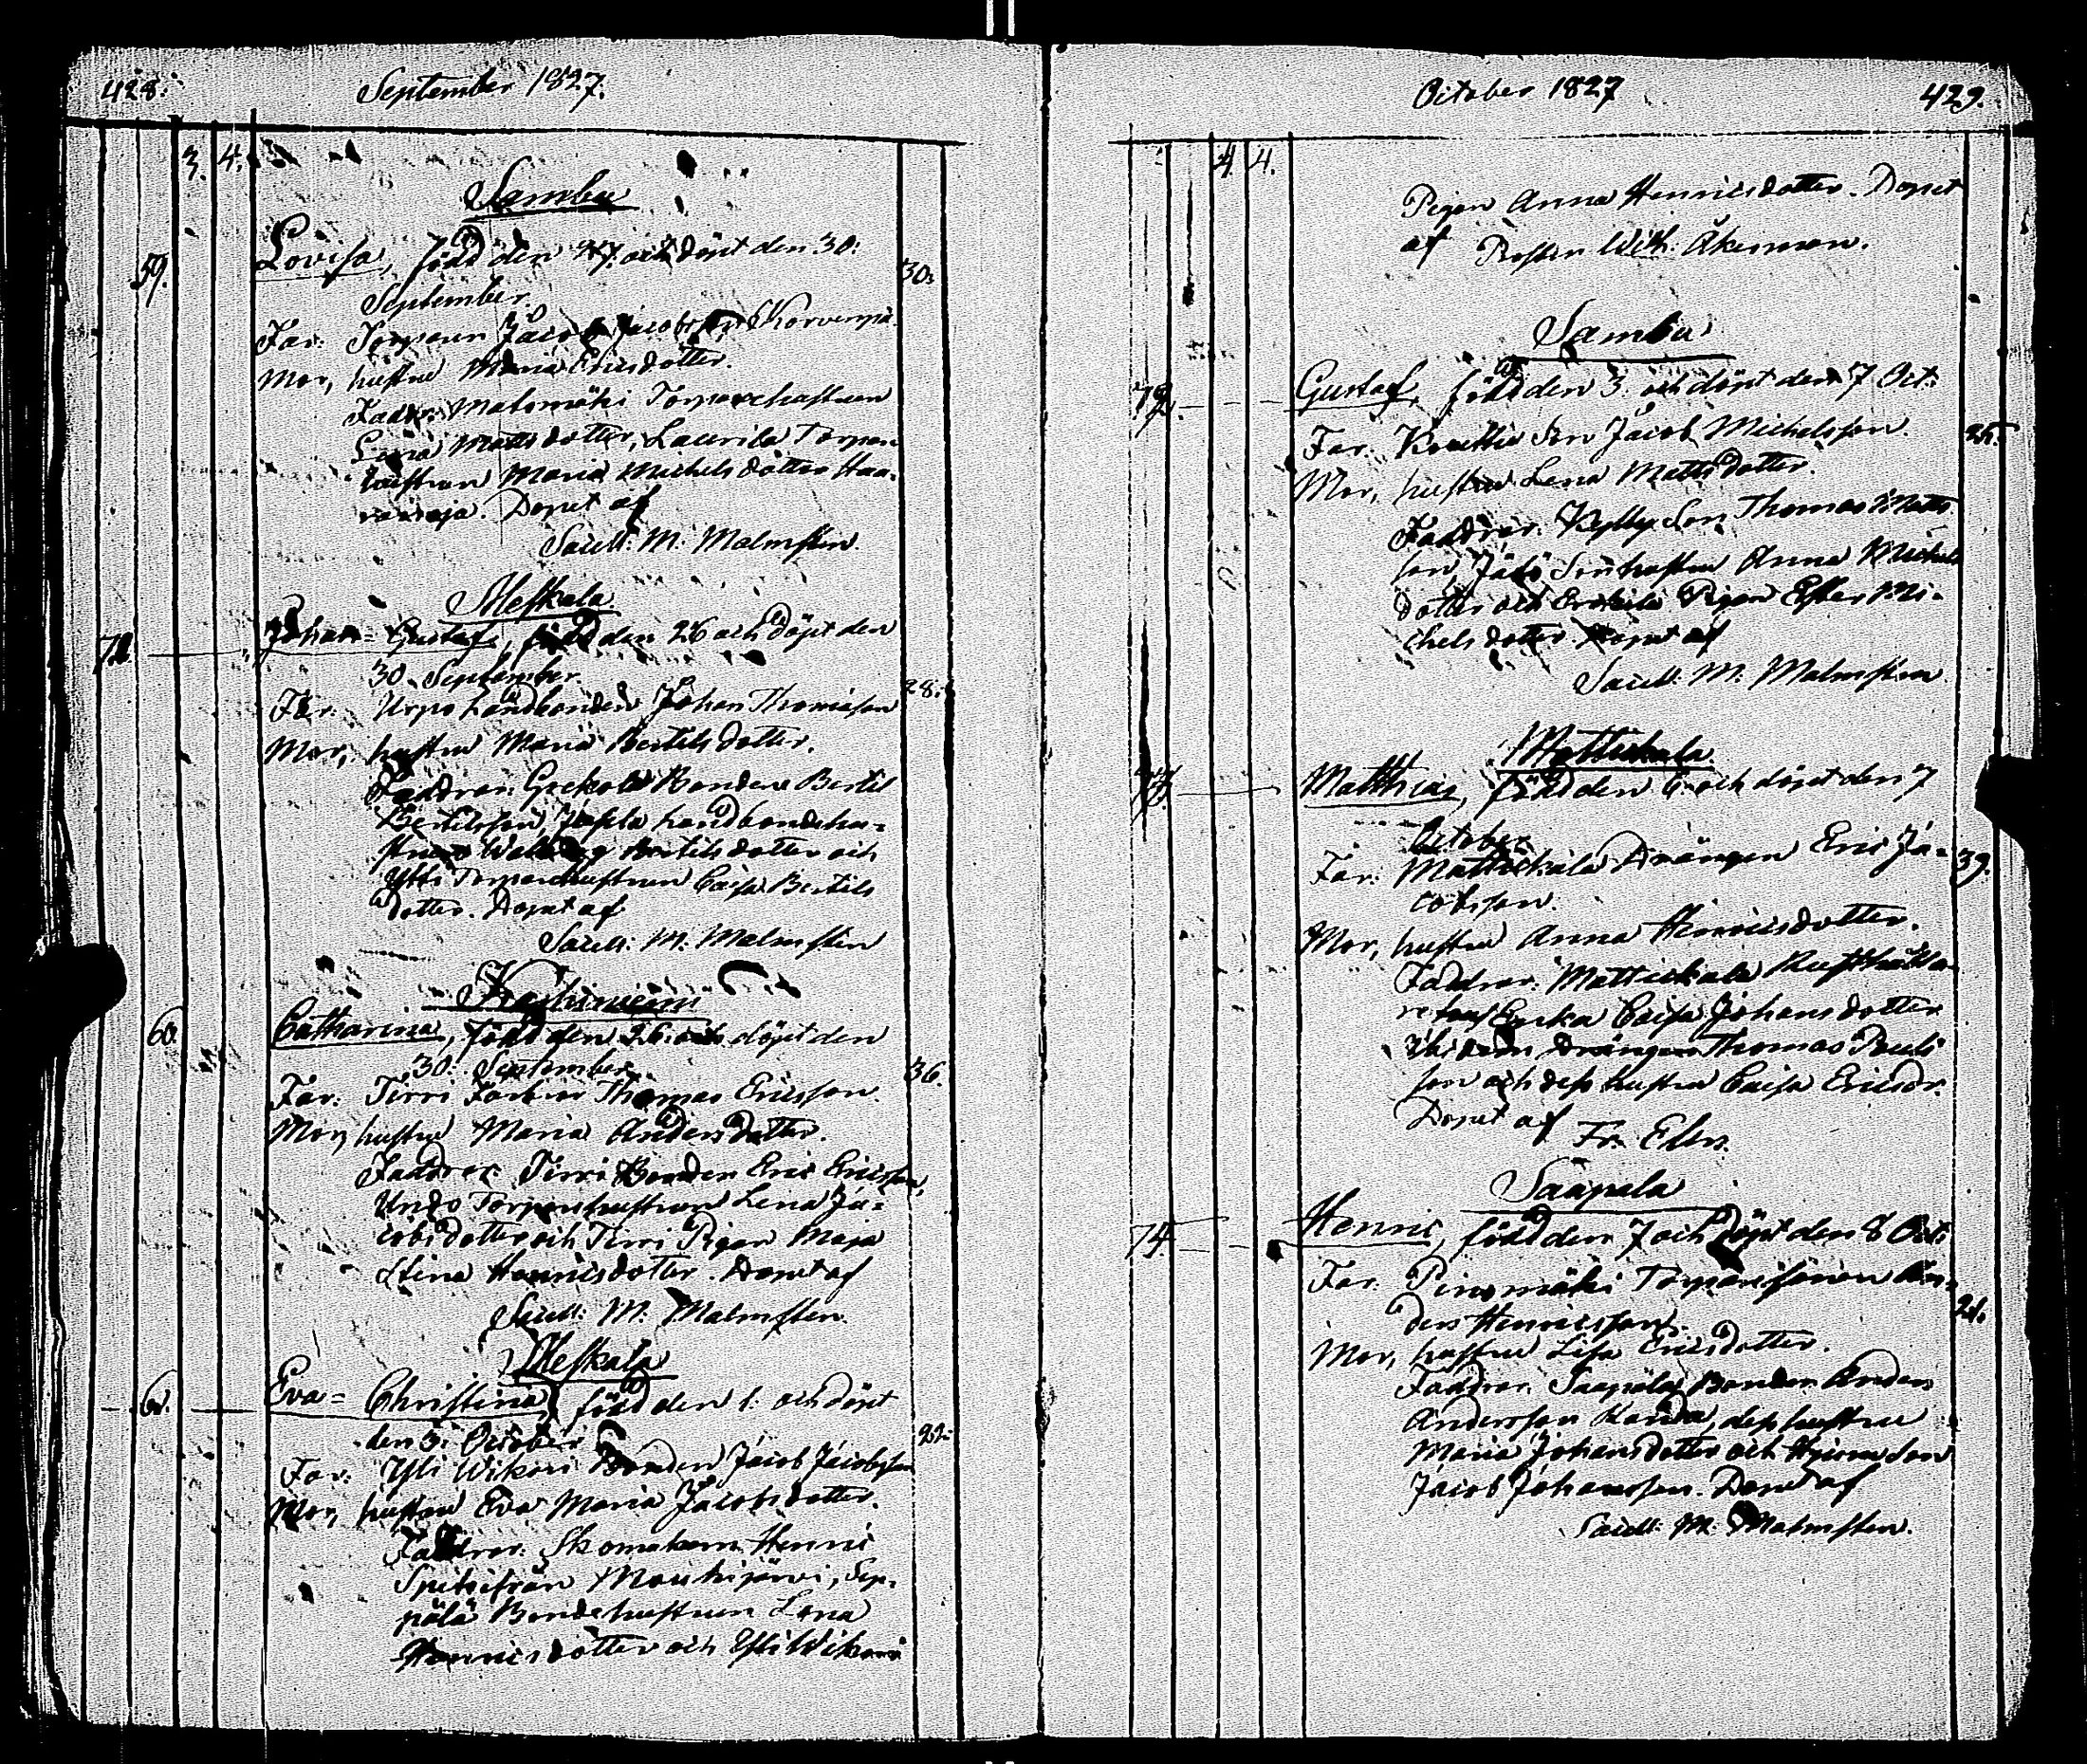 428.
September 1827.
3. 4.
Sambu
59. Lovisa, född den 27. och döpt den 30. 30.
September.
Far: Torparen Jacob Jacobsson Korvenpä
Mor, hustru Maria Ericsdotter.
Faddr: Matomäki Torparehustrun
Lena Mattsdotter, Laurila Torpare
hustrun Maria Michelsdotter Haa-
Döpet af
Sacell: M: Malmsten.
Meskala
72. Johan-Gustaf, född den 26 och döpt den
30 September. 28.
Far: Urpo Landbonden Johan Thomasson
Mor, hustru Maria Bertilsdotter.
Faddrar: Grekola Bonden Bertil
Bertilsson, landbondehu-
strun Bertilsdotter och
Ylli Torparehustrun Caisa Bertils
dotter. Döpet af
Sacell: M: Malmsten
Koskiniemi
60. Catharina, född den 26. och döpt den
30. September. 36.
Far: Tirri Thomas Ericsson.
Mor, hustru Maria Andersdotter.
Faddrar: Tirri Bonden Eric Ericsson,
Undo Torparehustrun Lena Ja-
cobsdotter och Tirri Pigan Maja
Stina Henricsdotter. Döpet af
Sacell: M: Malmsten.
Meskala
61. Eva-Christina, född den 1. och döpt
den 3. October 22.
Far: Yli Wikari Bonden Jacob Jacobsson
Mor, hustru Eva Maria Jacobsdotter.
Faddrar: Skomakaren Henric
Spits ifrån Mouhijärvi, Sep-
pälä Bondehustrun Lena
Henricsdotter och Yli Wikari
October 1827
429.
4. 4.
Pigan Anna Henricsdotter. Döpet
af Prosten With: Åkerman.
Sambu
Gustaf, född den 3. och döpt den 7 Oct:
Far: Knuttila Son Jacob Michelsson.
Mor, hustru Lena Mattsdotter.
Faddrar: Son Thomas Matts
son, Sonhustru Anna Michels
dotter och Pigan Ester Mi-
chelsdotter. Döpet af
Sacell: M: Malmsten.
Mattickala
Matthias, född den 6. och döpt den 7
October. 39.
Far: Mattickala Drängen Eric Ja-
cobsson.
Mor, hustru Anna Henricsdotter.
Faddrar: Mattickala Rusthålla-
re Enka Caisa Johansdotter
ibidem Drängen Thomas Pauls
son och dess hustru Caisa Ericsdr.
Döpet af Fr. Elers.
Saapala
74 Henric, född den 7 och döpt den 8 Oct:
Far: Pinomäki Torparesonen An-
ders Henricsson.
Mor, hustru Lisa Ericsdotter.
Faddrar: Saapala Bonden Anders
Andersson dess hustru
Maria Johansdotter och Son
Jacob Johansson. Döpet af
Sacell: M: Malmsten.